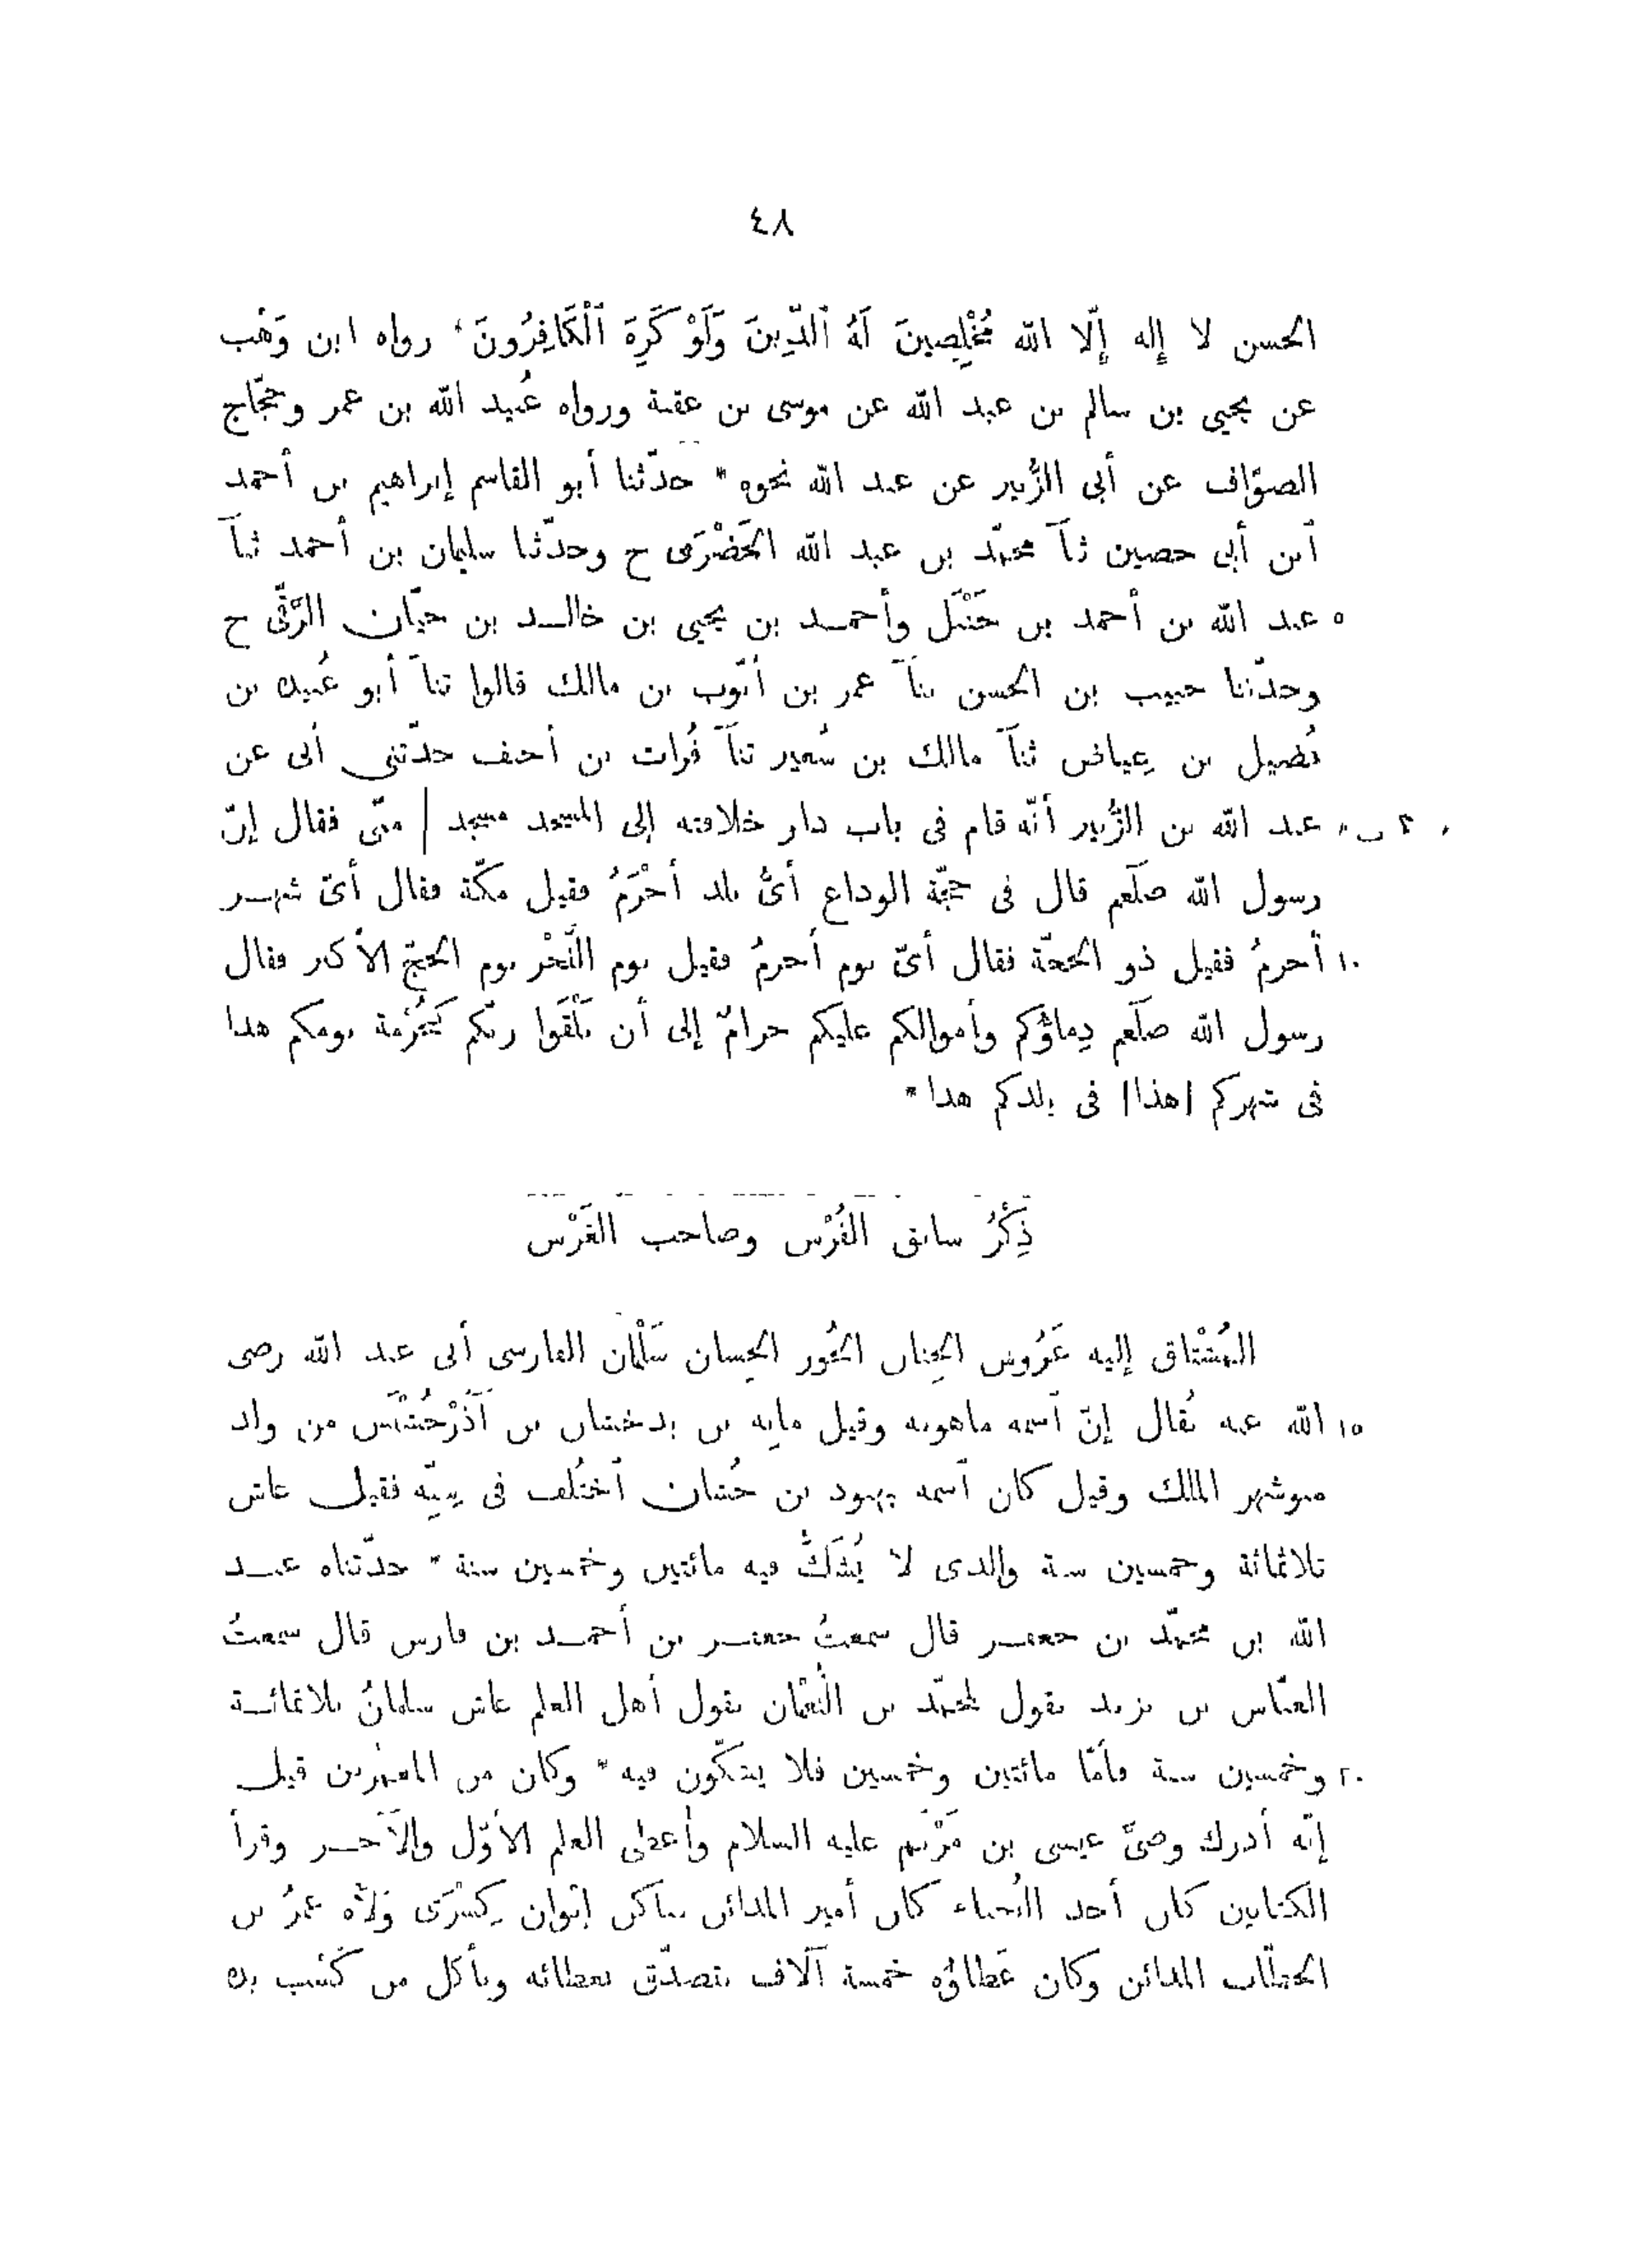 ٤٨
الحسن لا إله إلّا الله مُخْلِصِينَ لَهُ ٱلدِّينَ وَلَوْ كَرِهَ ٱلْكَافِرُونَ، رواه ابن وَهْب
عن يحيى بن سالم بن عبد الله عن موسى بن عقبة ورواه عُبيد الله بن عمر وحجّاج
الصوّاف عن أبى الزُّبير عن عبد الله نحوه * حدّثنا أبو القاسم إبراهيم بن أحمد
ٱبن أبى حصين ثنآ محمّد بن عبد الله الحَضْرَمى ح وحدّثنا سليمان بن أحمد ثنآ
٥ عبد الله بن أحمد بن حَنْبَل وأحمد بن يحيى بن خالد بن حيّان الرَّقّى ح
وحدّثنا حبيب بن الحسن ثنآ عمر بن أيّوب بن مالك قالوا ثنآ أبو عُبيدة بن
فُضيل بن عِياض ثنآ مالك بن سُعَير ثنآ فُرات بن أحنف حدّثنى أبى عن
٢ ب عبد الله بن الزُّبير أنّه قام فى باب دار خلافته إلى المسجد مسجد | منًى فقال إنّ
رسول الله صلّعم قال فى حجّة الوداع أىُّ بلد أحْرَمُ فقيل مكّة فقال أىّ شهر
١٠ أحرمُ فقيل ذو الحجّة فقال أىّ يوم أحرمُ فقيل يوم النَّحْر يوم الحجّ الأكبر فقال
رسول الله صلّعم دِماؤُكم وأموالكم عليكم حرامٌ إلى أن تَلْقَوا ربّكم كَحُرْمة يومكم هذا
فى شهركم |هذا| فى بلدكم هذا *
ذِكْرُ سابق الفُرْس وصاحب الغَرْس
المُشْتاق إليه عَرُوس الجِنان الحُور الحِسان سَلْمان الفارسى أبى عبد الله رضى
١٥ الله عنه يُقال إنّ ٱسمه ماهويه وقيل مايِه بن بدخشان بن آذَرْجُشْنَس من ولد
منوشهر الملك وقيل كان ٱسمه بهبود بن خُشان ٱختُلف فى سِنّه فقيل عاش
ثلاثمائة وخمسين سنة والذى لا يُشَكُّ فيه مائتين وخمسين سنة * حدّثناه عبد
الله بن محمّد بن جعفر قال سمعتُ جعفر بن أحمد بن فارس قال سمعتُ
العبّاس بن يزيد يقول لمحمّد بن النُّعْمان يقول أهل العلم عاش سلمانُ ثلاثمائة
٢٠ وخمسين سنة فأمّا مائتين وخمسين فلا يشكّون فيه * وكان من المعمّرين قيل
إنّه أدرك وصىّ عيسى بن مَرْيَم عليه السلام وأعطى العلم الأوّل والآخر وقرأ
الكتابين كان أحد النُجباء كان أمير المدائن ساكن إيْوان كِسْرَى وَلّاه عمرُ بن
الخطّاب المدائن وكان عَطاؤه خمسة آلاف يتصدّق بعطائه ويأكل من كَسْب يده